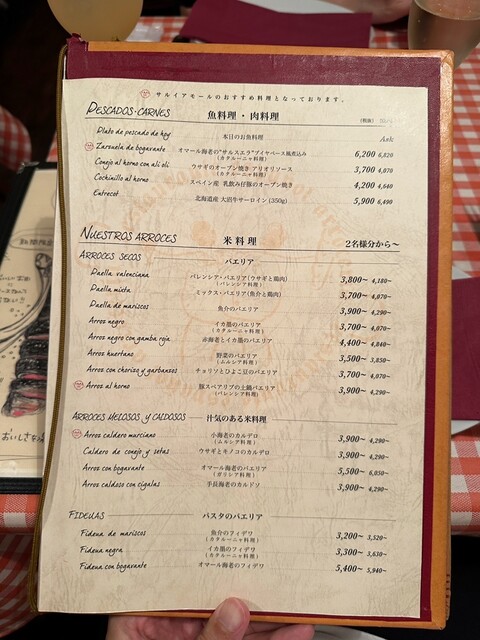 サルイアモールのおすすめ料理となっております。
PESCADOS・CARNES 魚料理・肉料理 (税抜)
Plato de pescado de hoy 本日のお魚料理 Ask
Zarzuela de bogavante オマール海老の"サルスエラ"ブイヤベース風煮込み 6,200 6,820
(カタルーニャ料理)
Conejo al horno con ali oli ウサギのオーブン焼き アリオリソース 3,700 4,070
(カタルーニャ料理)
Cochinillo al horno スペイン産 乳飲み仔豚のオーブン焼き 4,200 4,640
Entrecot 北海道産 大沼牛サーロイン(350g) 5,900 6,490
NUESTROS ARROCES 米料理 2名様分から〜
ARROCES SECOS パエリア
Paella valenciana バレンシア・パエリア(ウサギと鶏肉) 3,800~ 4,180~
(バレンシア料理)
Paella mixta ミックス・パエリア(魚介と鶏肉) 3,700~ 4,070~
Paella de mariscos 魚介のパエリア 3,900~ 4,290~
Arros negro イカ墨のパエリア 3,700~ 4,070~
(カタルーニャ料理)
Arros negro con gamba roja 赤海老とイカ墨のパエリア 4,400~ 4,840~
Arros huertano 野菜のパエリア 3,500~ 3,850~
(ムルシア料理)
Arros con chorizo y garbanzos チョリソとひよこ豆のパエリア 3,700~ 4,070~
Arros al horno 豚スペアリブの土鍋パエリア 3,900~ 4,290~
(バレンシア料理)
ARROCES MELOSOS Y CALDOSOS 汁気のある米料理
Arros caldero murciano 小海老のカルデロ 3,900~ 4,290~
(ムルシア料理)
Caldero de conejo y setas ウサギとキノコのカルデロ 3,900~ 4,290~
Arros con bogavante オマール海老のパエリア 5,500~ 6,050~
(ガリシア料理)
Arros caldoso con cigalas 手長海老のカルドソ 3,900~ 4,290~
FIDEUAS パスタのパエリア
Fideua de mariscos 魚介のフィデワ 3,200~ 3,520~
(カタルーニャ料理)
Fideua negra イカ墨のフィデワ 3,300~ 3,630~
(カタルーニャ料理)
Fideua con bogavante オマール海老のフィデワ 5,400~ 5,940~